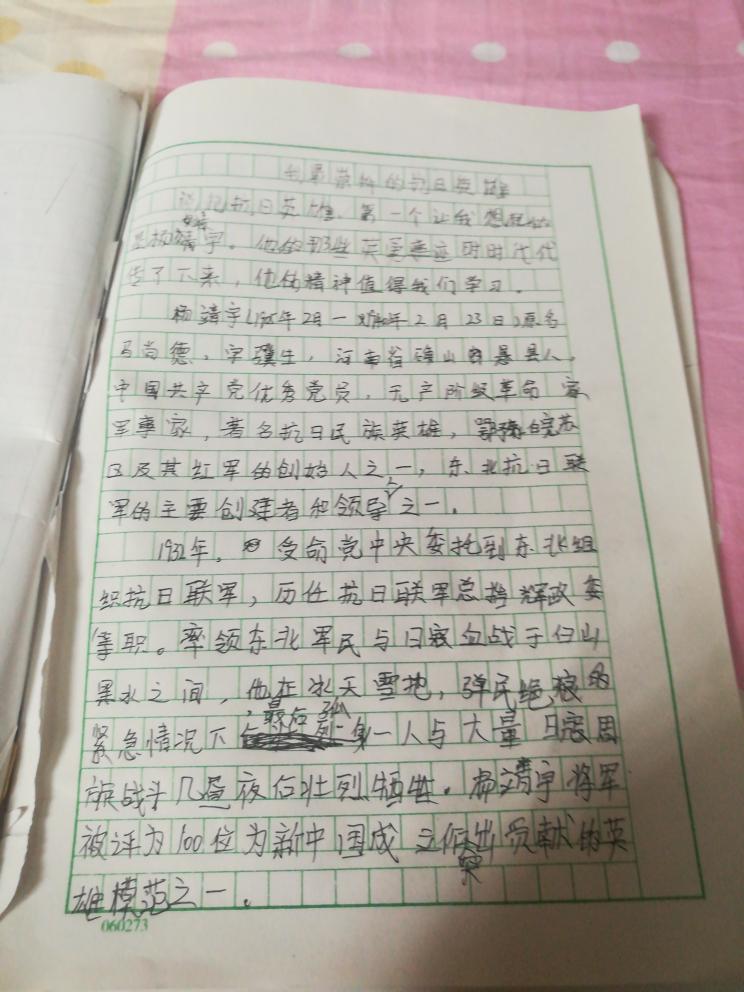 的抗日英雄
说起抗日英雄,第一个让我想起的
是杨靖宇。他的那些英雄事迹时时代代
传了下来,他的精神值得我们学习。
杨靖宇(1905年2月一1940年2月23日)原名
马尚德,字骥生,河南省确山县人,
中国共产党优秀党员,无产阶级革命家
军事家,著名抗日民族英雄,鄂豫皖苏
区及其红军的创始人之一,东北抗日联
军的主要创建者和领导人之一。
1932年,受命党中央委托到东北组
织抗日联军,历任抗日联军总指挥政委
等职。率领东北军民与日寇血战于白山
黑水之间,他在冰天雪地,弹尽绝粮的
紧急情况下,最后孤身一人与大量日寇周
旋战斗几昼夜后壮烈牺牲。杨靖宇将军
被评为100位为新中国成立作突出贡献的英
雄模范之一。
060273